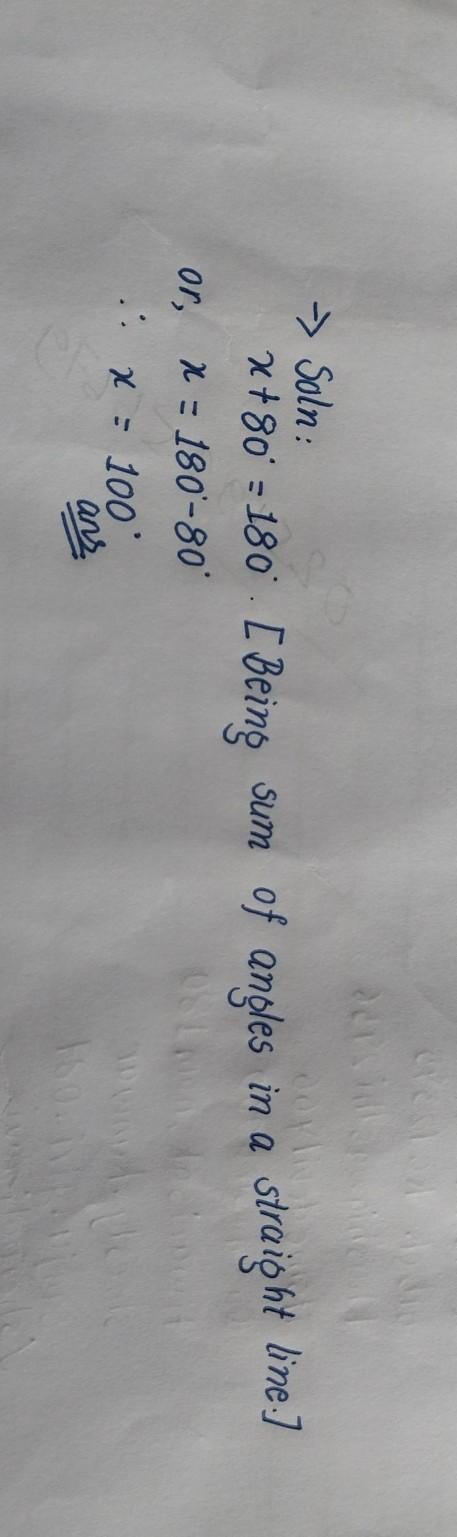 → Soln:
x + 80° = 180°. [Being sum of angles in a straight line.]
or, x = 180° - 80°
∴ x = 100°
ans